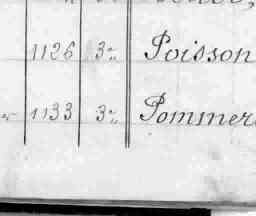 1126 3" Poisson
1133 3" Pommer